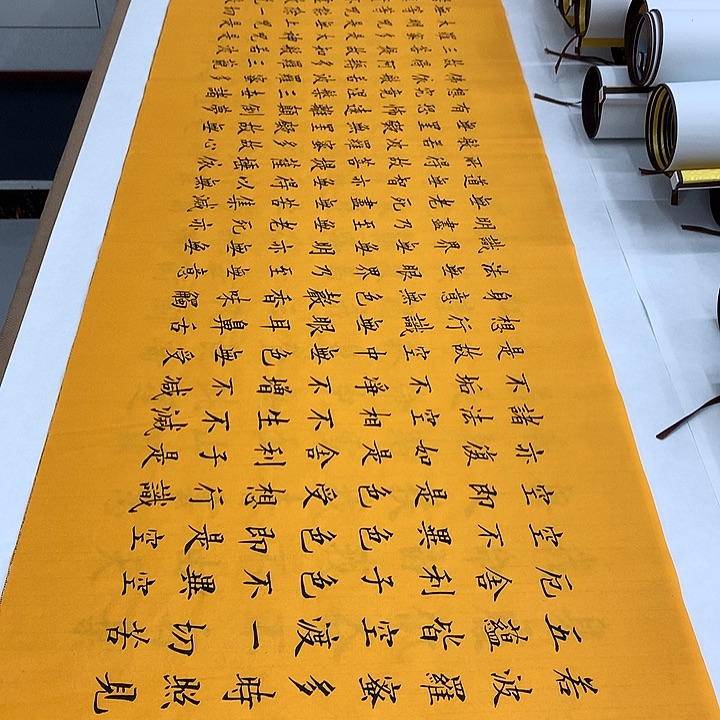 若波羅蜜多時照見
五蘊皆空渡一切苦
厄舍利子色不異空
空不異色色即是空
空即是色受想行識
亦復如是舍利子是
諸法空相不生不滅
不垢不淨不增不減
是故空中無色無受
想行識無眼耳鼻舌
身意無色聲香味觸
法無眼界乃至無意
識界無無明亦無無
明盡乃至無老死亦
無老死盡無苦集滅
道無智亦無得以無
所得故菩提薩埵依
般若波羅蜜多故心
無罣礙無罣礙故無
有恐怖遠離顛倒夢
想究竟涅槃三世諸
佛依般若波羅蜜多
故得阿耨多羅三藐
三菩提故知般若波
羅蜜多是大神咒是
大明咒是無上咒是
無等等咒能除一切